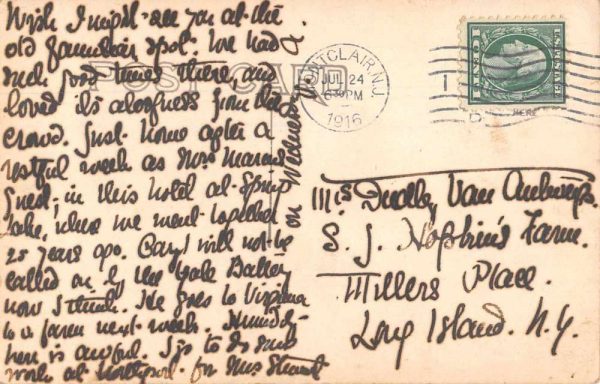 Wish I might see you at the
old familiar spot. We had
such good times there, and
loved its aloofness from the
crowd. Just home after a
restful week as Mrs
guest, in this hotel at Spring
Lake, where we went together
25 years ago. Caryl will not be
called on by the Yale Battery
now I think. He goes to Virginia
to a farm next week. Humidity
here is awful. I go to do some
work at for Mrs
on Wednesday
POST CARD
MONTCLAIR, N.J.
JUL 24
6 30 PM
1916
1 CENT 1
HERE
Mrs Dudley Van Antwerp.
S. J. Hopkins Farm.
Millers Place.
Long Island. N.Y.